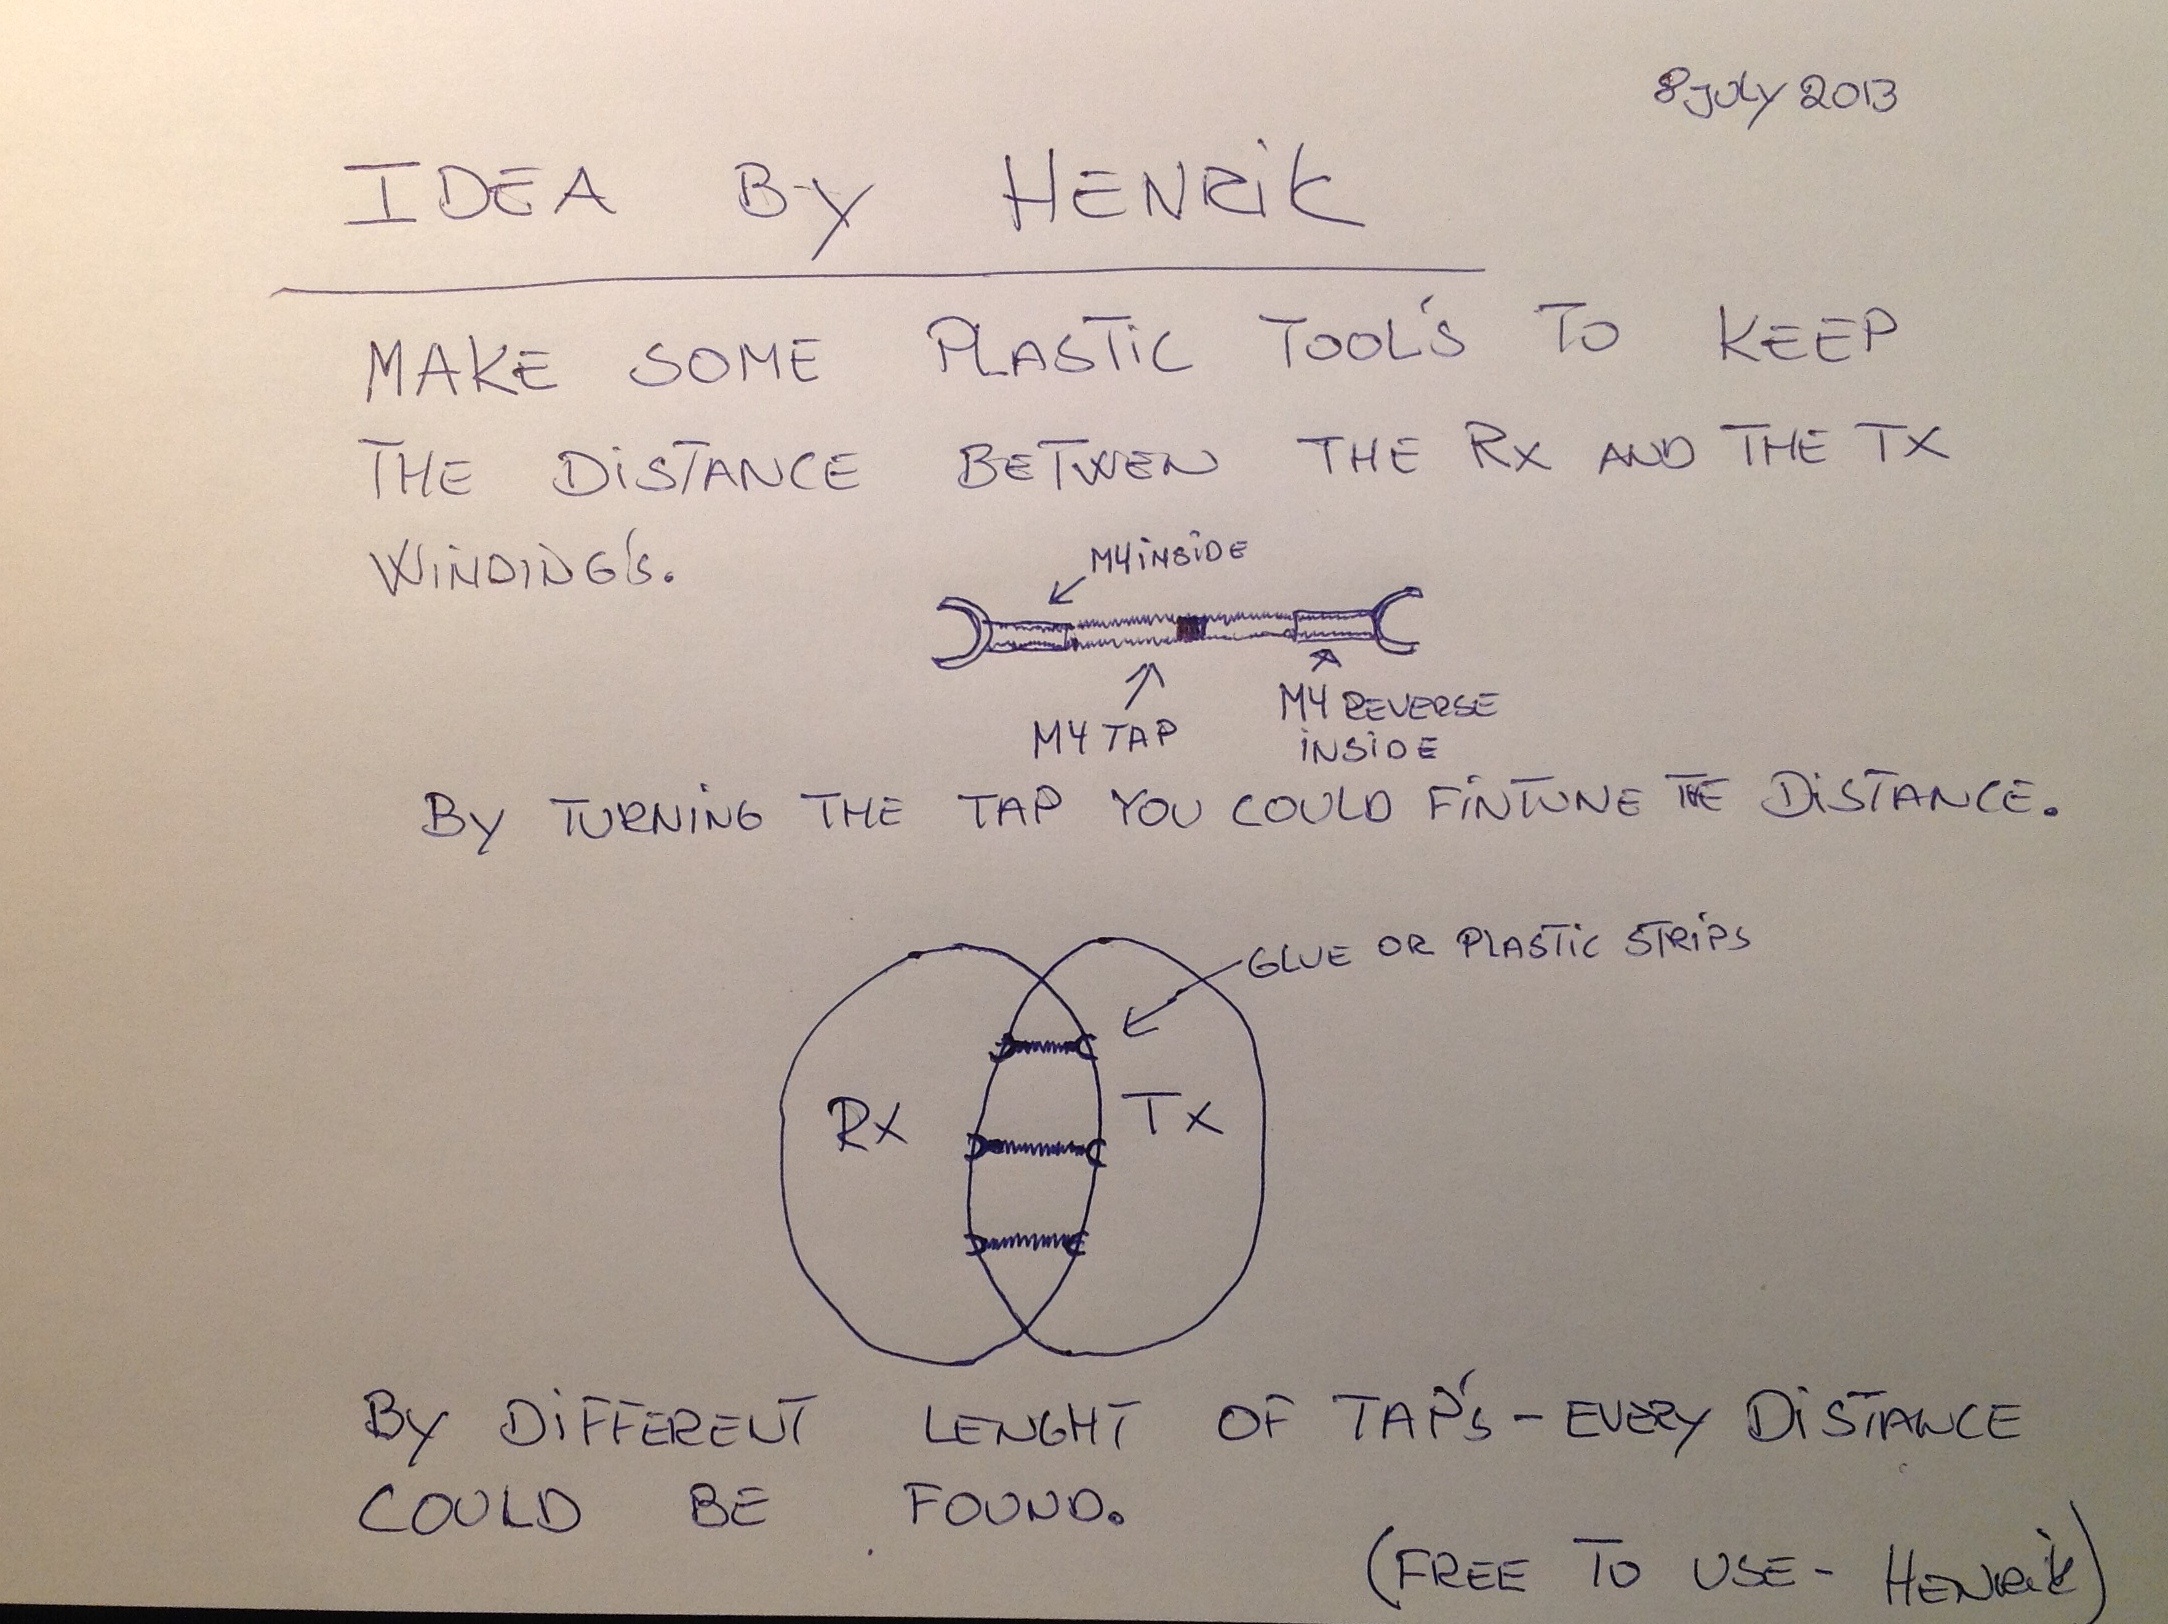 8 JULY 2013
IDEA BY HENRIK
MAKE SOME PLASTIC TOOL'S TO KEEP
THE DISTANCE BETWEN THE RX AND THE TX
WINDING'S.
M4 INSIDE
M4 TAP
M4 REVERSE
INSIDE
BY TURNING THE TAP YOU COULD FINTUNE THE DISTANCE.
GLUE OR PLASTIC STRIPS
RX
TX
BY DIFFERENT LENGHT OF TAP'S - EVERY DISTANCE
COULD BE FOUND.
(FREE TO USE - HENRIK)